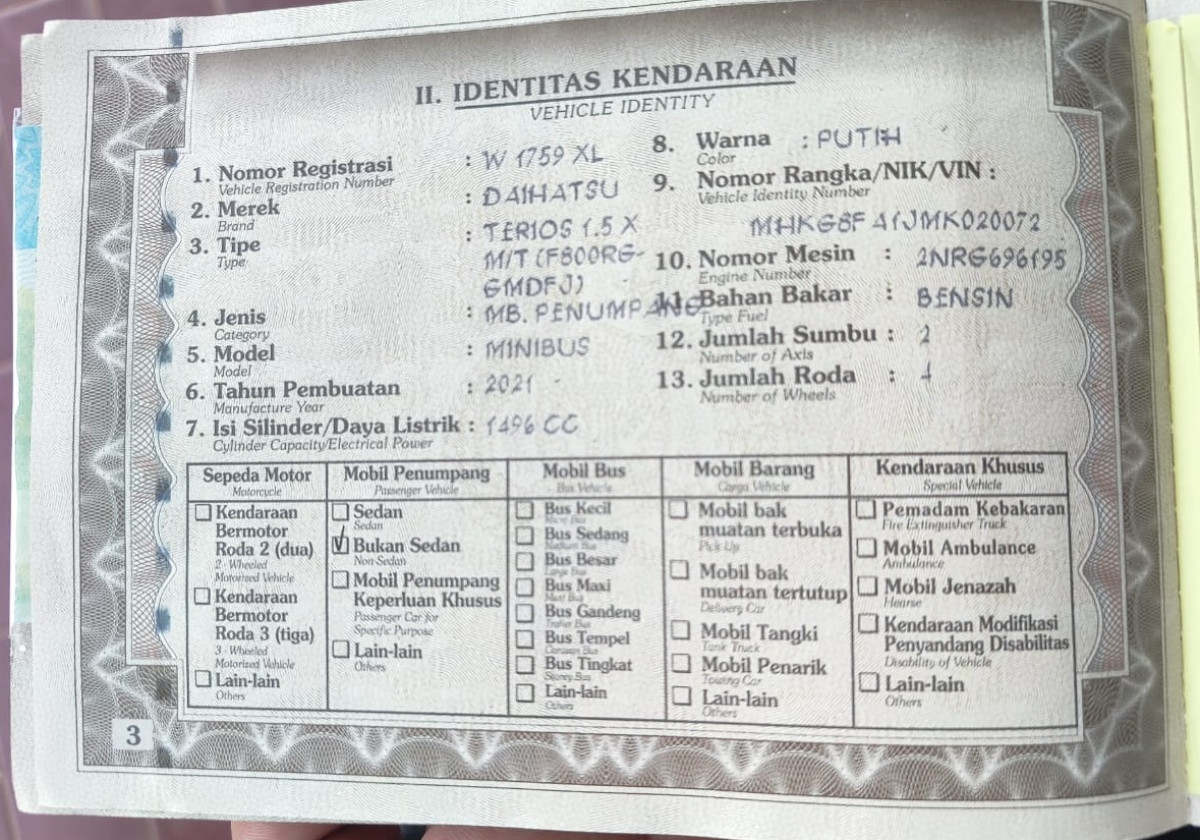 II. IDENTITAS KENDARAAN
VEHICLE IDENTITY
1. Nomor Registrasi : W 1759 XL
Vehicle Registration Number
2. Merek : DAIHATSU
Brand
3. Tipe : TERIOS 1.5 X
Type
M/T (F800RG-
GMDFJ)
4. Jenis : MB. PENUMPANG
Category
5. Model : MINIBUS
Model
6. Tahun Pembuatan : 2021
Manufacture Year
7. Isi Silinder/Daya Listrik : 1496 CC
Cylinder Capacity/Electrical Power
8. Warna : PUTIH
Color
9. Nomor Rangka/NIK/VIN :
Vehicle Identity Number
MHKG8FA1JMK020072
10. Nomor Mesin : 2NRG696195
Engine Number
11. Bahan Bakar : BENSIN
Type Fuel
12. Jumlah Sumbu : 2
Number of Axis
13. Jumlah Roda : 4
Number of Wheels
Sepeda Motor
Motorcycle
Kendaraan
Bermotor
Roda 2 (dua)
2 - Wheeled
Motorized Vehicle
Kendaraan
Bermotor
Roda 3 (tiga)
3 - Wheeled
Motorized Vehicle
Lain-lain
Others
Mobil Penumpang
Passenger Vehicle
Sedan
Sedan
Bukan Sedan
Non Sedan
Mobil Penumpang
Keperluan Khusus
Passenger Car for
Specific Purpose
Lain-lain
Others
Mobil Bus
Bus Vehicle
Bus Kecil
Bus Sedang
Medium Bus
Bus Besar
Large Bus
Bus Maxi
Maxi Bus
Bus Gandeng
Bus Tempel
Bus Tingkat
Lain-lain
Others
Mobil Barang
Cargo Vehicle
Mobil bak
muatan terbuka
Pick Up
Mobil bak
muatan tertutup
Delivery Car
Mobil Tangki
Tank Truck
Mobil Penarik
Towing Car
Lain-lain
Others
Kendaraan Khusus
Special Vehicle
Pemadam Kebakaran
Fire Extinguisher Truck
Mobil Ambulance
Ambulance
Mobil Jenazah
Hearse
Kendaraan Modifikasi
Penyandang Disabilitas
Disability of Vehicle
Lain-lain
Others
3